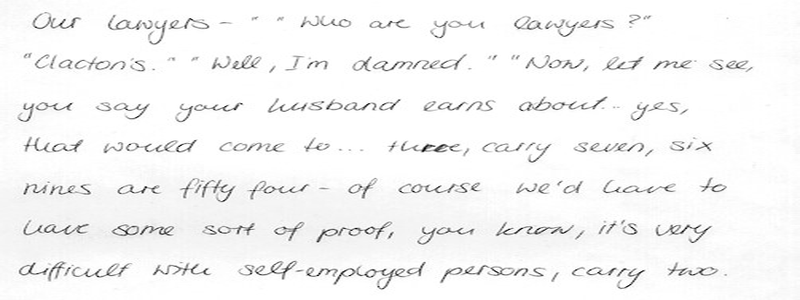 Our lawyers - " " Who are you lawyers?"
"Clacton's." " Well, I'm damned." "Now, let me see,
you say your husband earns about... yes,
that would come to... three, carry seven, six
nines are fifty four - of course we'd have to
have some sort of proof, you know, it's very
difficult with self-employed persons, carry two.